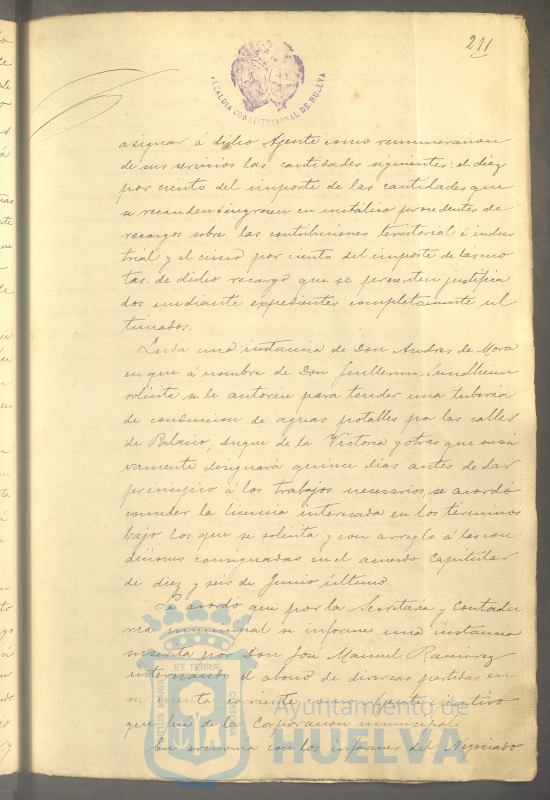 211
ALCALDIA CONSTITUCIONAL DE HUELVA
asignar á dicho Agente como remuneracion
de sus servicios las cantidades siguientes: el diez
por ciento del importe de las cantidades que
se recauden é ingresen en metálico procedentes de
recargos sobre las contribuciones territorial é indus
trial y el cinco por ciento del importe de las cuo
tas de dicho recargo que se presenten justifica
dos mediante expedientes completamente ul
timados.
Leida una instancia de Don Andres de Mora
en que á nombre de Don Guillermo Sundheim
solicita se le autorice para tender una tuberia
de conduccion de aguas potables por las calles
de Palacio, Duque de la Victoria y otras que
vamente designará quince dias antes de dar
principio á los trabajos necesarios, se acordó
conceder la licencia interesada en los términos
bajo los que se solicita y con arreglo á las con
diciones consignadas en el acuerdo Capitular
de diez y seis de Junio último.
Se acordó que por la Secretaria y Contadu
ria municipal se informe una instancia
suscrita por Don José Manuel Ramirez
interesando el abono de diversas partidas en
su cuenta corriente como Agente ejecutivo
que fué de la Corporacion municipal.
En armonia con los informes del Negociado
Ayuntamiento de
HUELVA